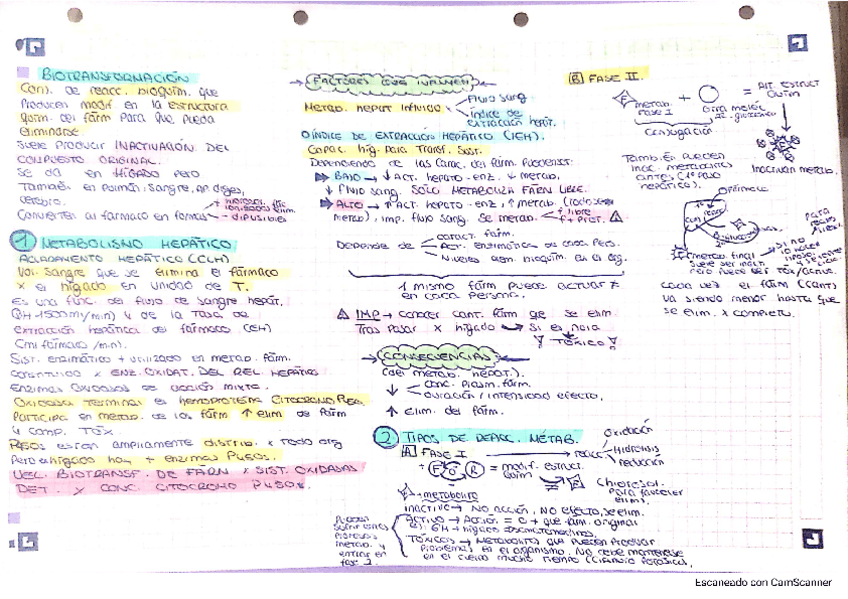 BIOTRANSFORMACIÓN
Conj. de reacc. bioquím. que
producen modif. en la estructura
quím. del fárm para que pueda
eliminarse.
Suele producir INACTIVACIÓN DEL
COMPUESTO ORIGINAL.
Se da en HÍGADO pero
También en pulmón, sangre, ap diges,
cerebro.
Convierten al fármaco en formas
+ difusibles
1 METABOLISMO HEPÁTICO
ACLARAMIENTO HEPÁTICO (CLH)
Vol. Sangre que se elimina el fármaco
x el hígado en unidad de T.
Es una func. del flujo de sangre hepát.
(QH-1500ml/min) y de la tasa de
extracción hepática del fármaco (EH)
(ml fármaco/min).
Sist. enzimático + utilizado en metab. fárm.
constituido x ENZ. OXIDAT. DEL REL. HEPÁTICO
Enzimas oxidasas de acción mixta.
Oxidasa terminal es hemoproteína CITOCROMO P450.
Participa en metab. de los fárm ↑ elim de fárm
y comp. TÓX
P450s están ampliamente distrib. x todo org
Pero en hígado hay + enzimas P450s.
VEL. BIOTRANSF. DE FÁRM x SIST. OXIDASAS
DET. x CONC. CITOCROMO P450s.
FACTORES QUE INFLUYEN
Metab. hepát influido
Flujo sang
Índice de
extracción hepát.
ÍNDICE DE EXTRACCIÓN HEPÁTICO (IEH).
Capac. híg. para Transf. Sust.
Dependiendo de las carac. del fárm. pueden ser
BAJO → ↓ Act. hepato-enz ↓ metab.
↓ flujo sang. SOLO METABOLIZA FÁRM LIBRE.
ALTO → ↑ Act. hepato-enz, ↑ metab. (todo se
metab), imp. flujo sang. Se metab.
f. libre
f + Prot.
Depende de
caract. fárm.
Act. enzimática de cada pers.
Niveles
en el org.
1 mismo fárm puede actuar ≠
en cada persona.
IMP → conocer cant. fárm que se elim.
Tras pasar x hígado
TÓXICO
CONSECUENCIAS
(del metab. hepát.).
↓ conc. plasm. fárm.
duración / intensidad efecto.
↑ elim. del fárm.
2 TIPOS DE REACC. METAB.
A FASE I
→ reacc.
Oxidación
Hidrólisis
reducción
+ F O R = modif. estruct.
quím
para favorecer
elim).
metabolito
INACTIVO → NO ACCIÓN, NO EFECTO, se elim.
ACTIVO → ACCIÓN = o + que fárm. original
TÓXICOS → METABOLITOS que pueden producir
problemas en el organismo. No debe mantenerse
en el cuerpo mucho tiempo
Pueden
sufrir varios
procesos
metab. y
entrar en
fase 2.
B FASE II.
metab.
FASE I
+
Otra moléc
= Alt. estruct
quím
Conjugación
Inactivan metab.
Tamb. Pueden
inac. metabolitos
antes (1º paso
hepático).
metab. final
suele ser inact.
pero puede ser TÓX/ACTIVO.
Cada vez el fárm (cant)
va siendo menor hasta que
se elim. x completo.
Escaneado con CamScanner